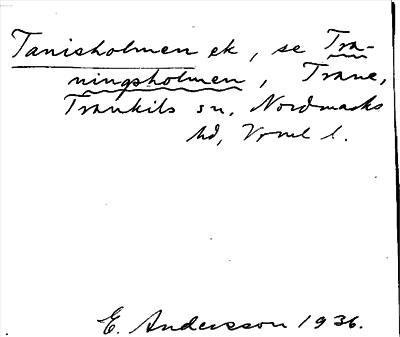 Tanisholmen ek, se Tra-
ningsholmen, Trane,
Trankils sn, Nordmarks
hd, Vrml l.
E. Andersson 1936.